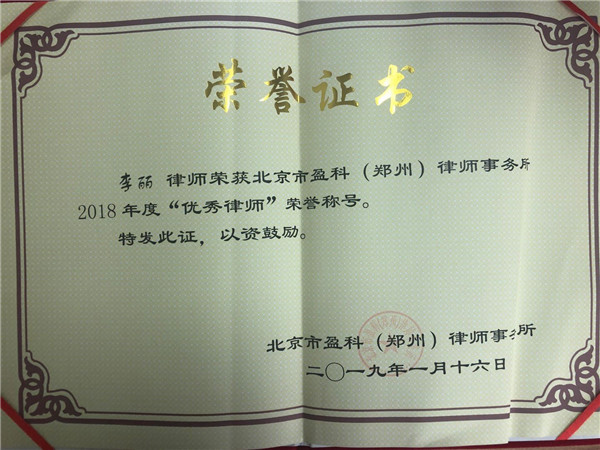 荣誉证书
李丽 律师荣获北京市盈科（郑州）律师事务所
2018 年度“优秀律师”荣誉称号。
特发此证，以资鼓励。
北京市盈科（郑州）律师事务所
二〇一九年一月十六日